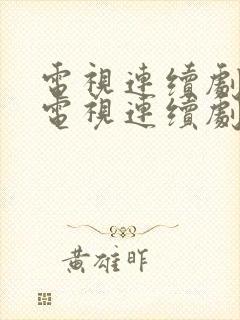 電視連續劇
電視連續劇
黃雄昨